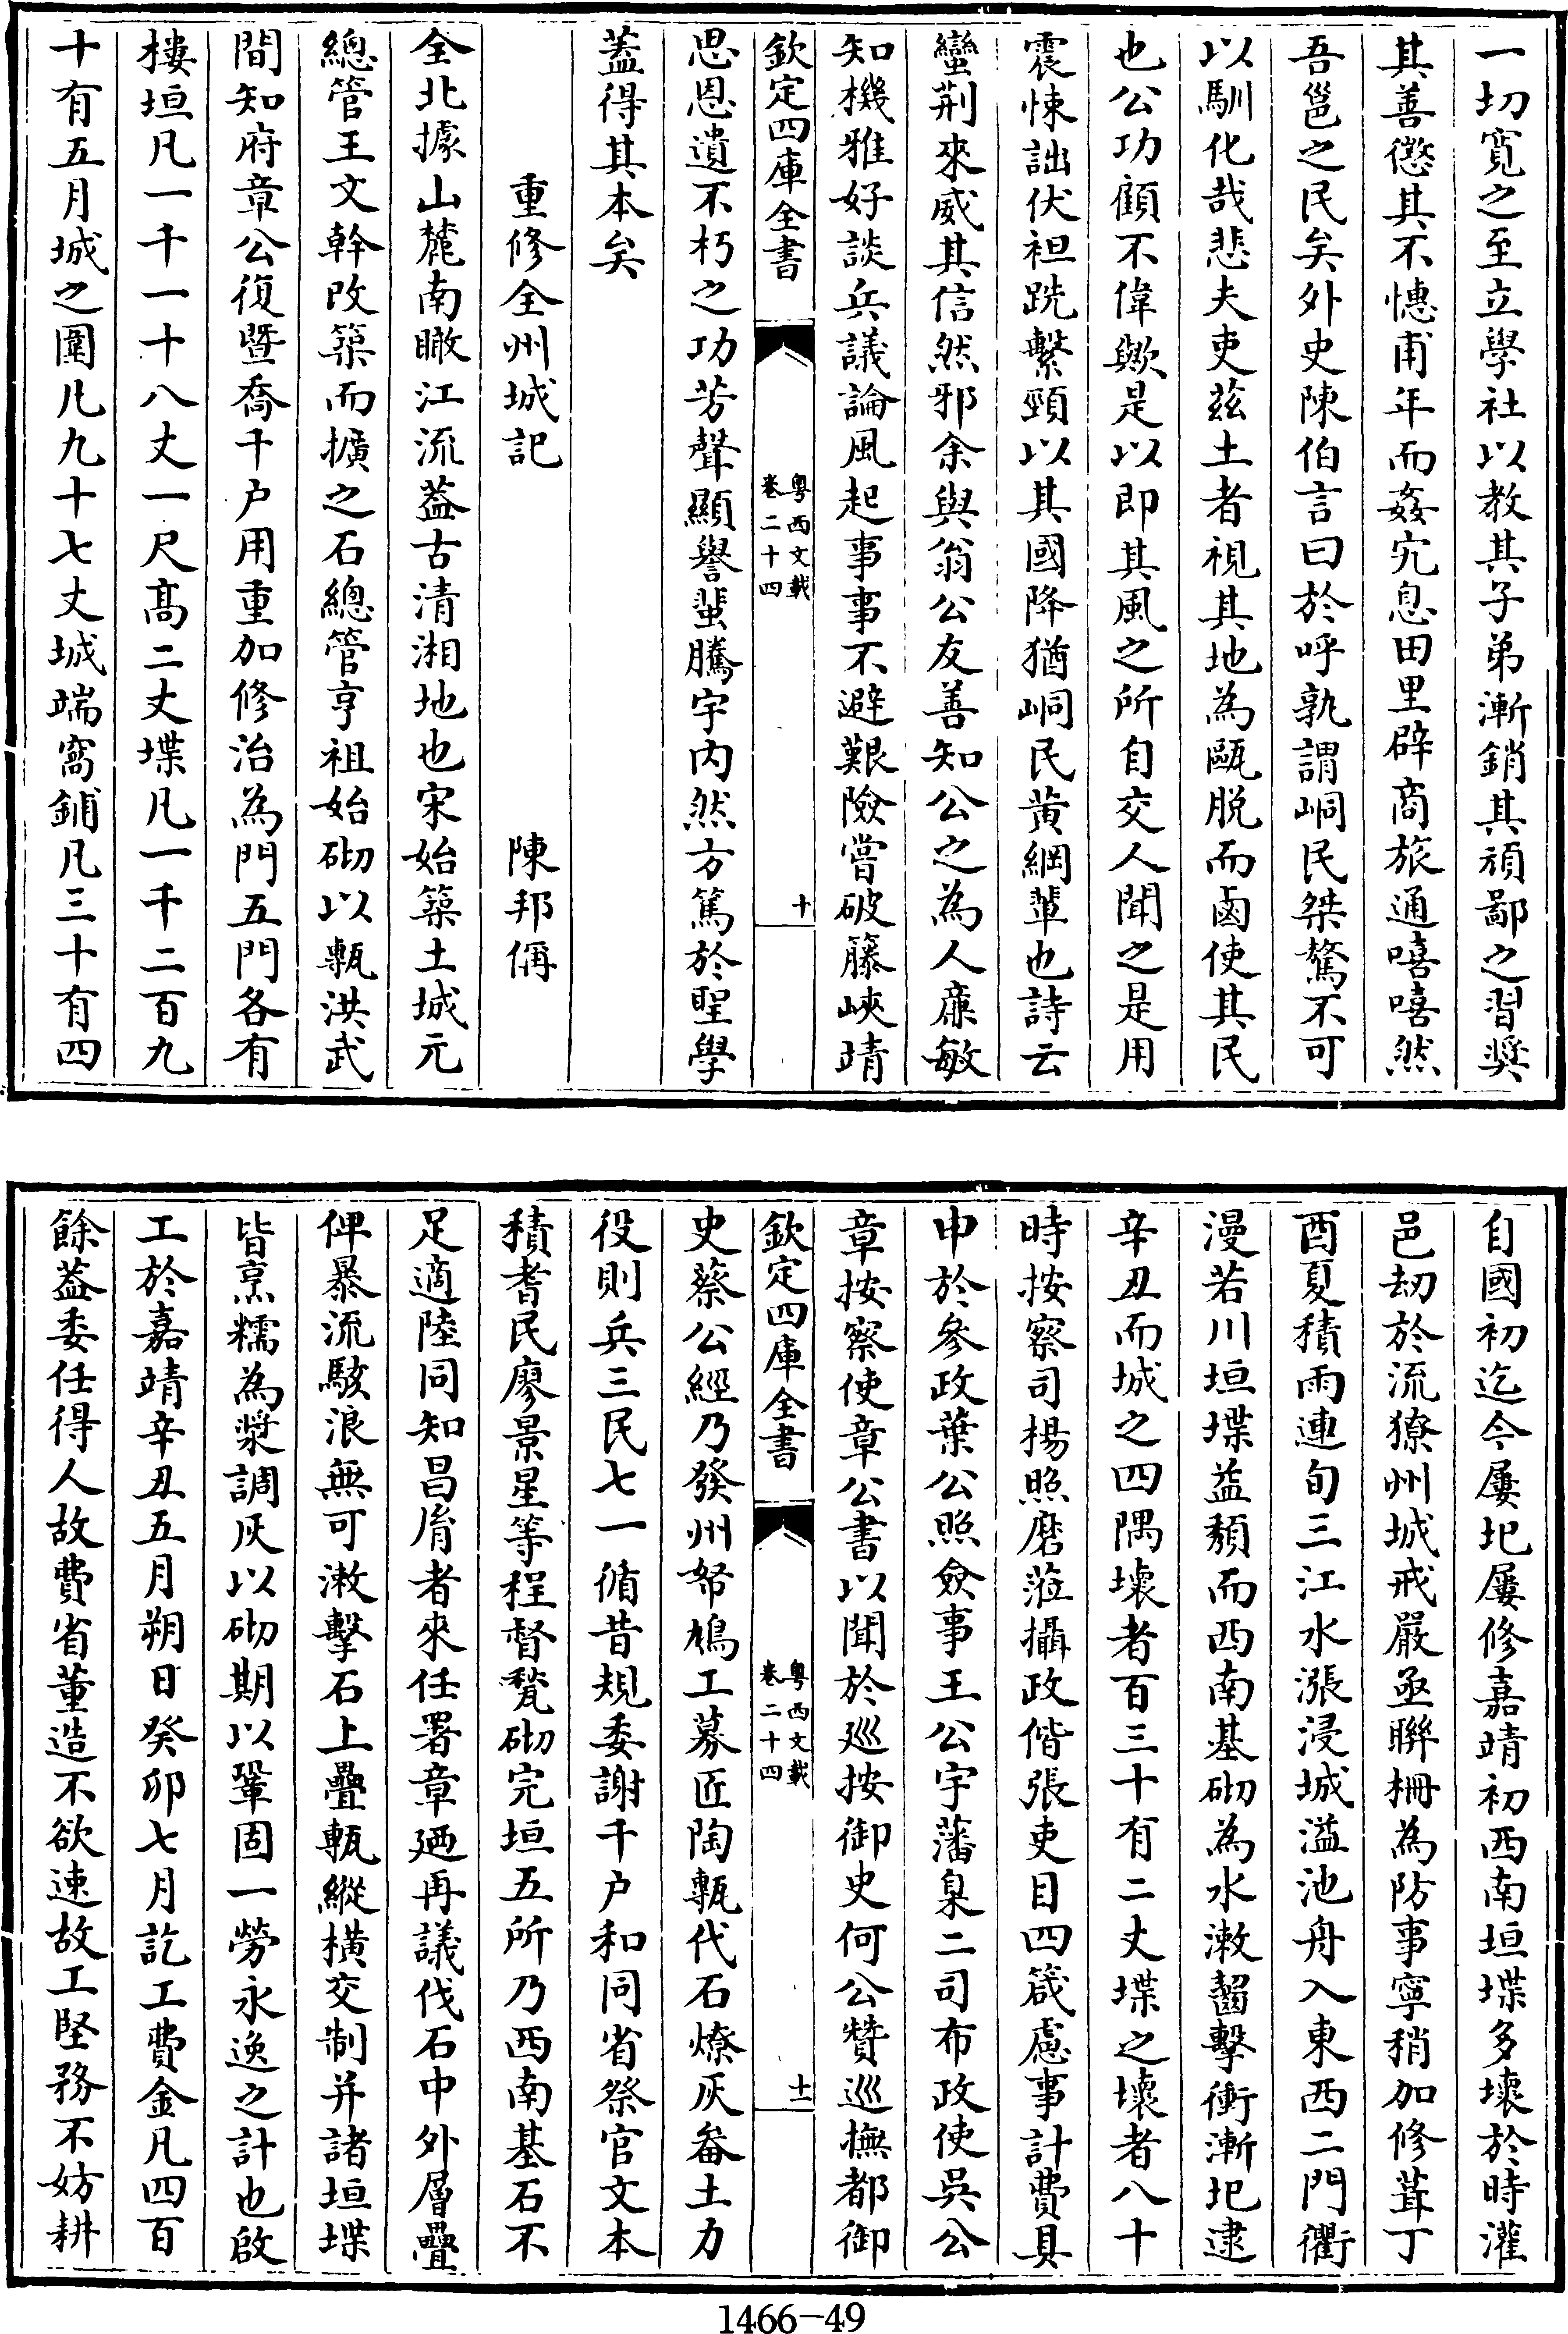 一切寛之至立學社以教其子弟漸銷其頑鄙之習奬
其善懲其不憓甫年而姦宄息田里辟商旅通嘻嘻然
吾邕之民矣外史陳伯言曰於呼孰謂峒民桀驁不可
以馴化哉悲夫吏兹土者視其地為甌脱而鹵使其民
也公功顧不偉歟是以即其風之所自交人聞之是用
震悚詘伏袒跣繫頸以其國降猶峒民黄綱輩也詩云
蠻荆來威其信然邪余與翁公友善知公之為人亷敏
知機雅好談兵議論風起事事不避艱險嘗破籐峽靖
欽定四庫全書
粤西文載
卷二十四
十
思恩遺不朽之功芳聲顯譽蜚騰宇内然方篤於聖學
蓋得其本矣
重修全州城記
陳邦偁
全北據山麓南瞰江流葢古清湘地也宋始築土城元
總管王文幹改築而擴之石總管亨祖始砌以甎洪武
間知府章公復暨喬千户用重加修治為門五門各有
樓垣凡一千一十八丈一尺髙二丈堞凡一千二百九
十有五月城之圍凡九十七丈城端窩鋪凡三十有四
自國初迄今屢圯屢修嘉靖初西南垣堞多壊於時灌
邑刼於流獠州城戒嚴亟聨柵為防事寧稍加修葺丁
酉夏積雨連旬三江水漲浸城溢池舟入東西二門衢
漫若川垣堞益頽而西南基砌為水漱齧擊衝漸圯逮
辛丑而城之四隅壊者百三十有二丈堞之壊者八十
時按察司楊照磨蒞攝政偕張吏目四箴慮事計費具
申於參政葉公照僉事王公宇藩臬二司布政使吳公
章按察使章公書以聞於廵按御史何公贊巡撫都御
欽定四庫全書
粤西文載
卷二十四
十一
史蔡公經乃發州帑鳩工募匠陶甎代石燎灰畚土力
役則兵三民七一循昔規委謝千户和同省祭官文本
積耆民廖景星等程督甃砌完垣五所乃西南基石不
足適陸同知昌𦙍者來任署章廼再議伐石中外層疊
俾暴流駭浪無可漱擊石上疊甎縱横交制并諸垣堞
皆烹糯為漿調灰以砌期以鞏固一勞永逸之計也啟
工於嘉靖辛丑五月朔日癸卯七月訖工費金凡四百
餘葢委任得人故費省董造不欲速故工堅務不妨耕
1466-49